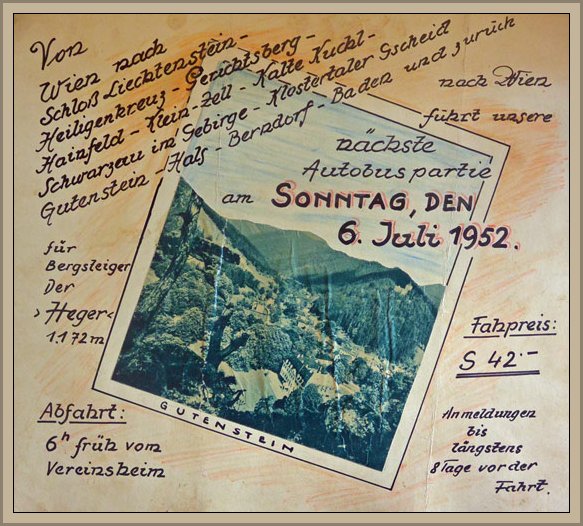 Von
Wien nach
Schloß Liechtenstein-
Heiligenkreuz - Gerichtsberg -
Hainfeld - Klein-Zell - Kalte Kuchl-
Schwarzau im Gebirge - Klostertaler Gscheid
Gutenstein - Hals - Berndorf - Baden und zurück
nach Wien
führt unsere
nächste
Autobuspartie
am SONNTAG, DEN
6. Juli 1952.
für
Bergsteiger
Der
›Heger‹
1.172m
Abfahrt:
6h früh vom
Vereinsheim
GUTENSTEIN
Fahpreis:
S 42.-
Anmeldungen
bis
längstens
8 Tage vor der
Fahrt.